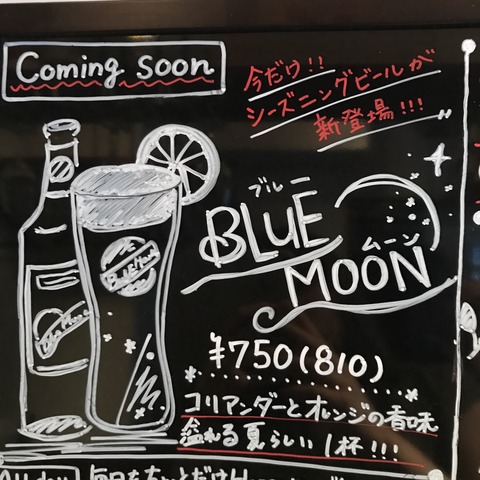 Coming soon
今だけ!!
シーズニングビールが
新登場!!!
ブルー
BLUE
ムーン
MOON
Blue Moon
¥750(810)
コリアンダーとオレンジの香味
溢れる夏らしい1杯!!!